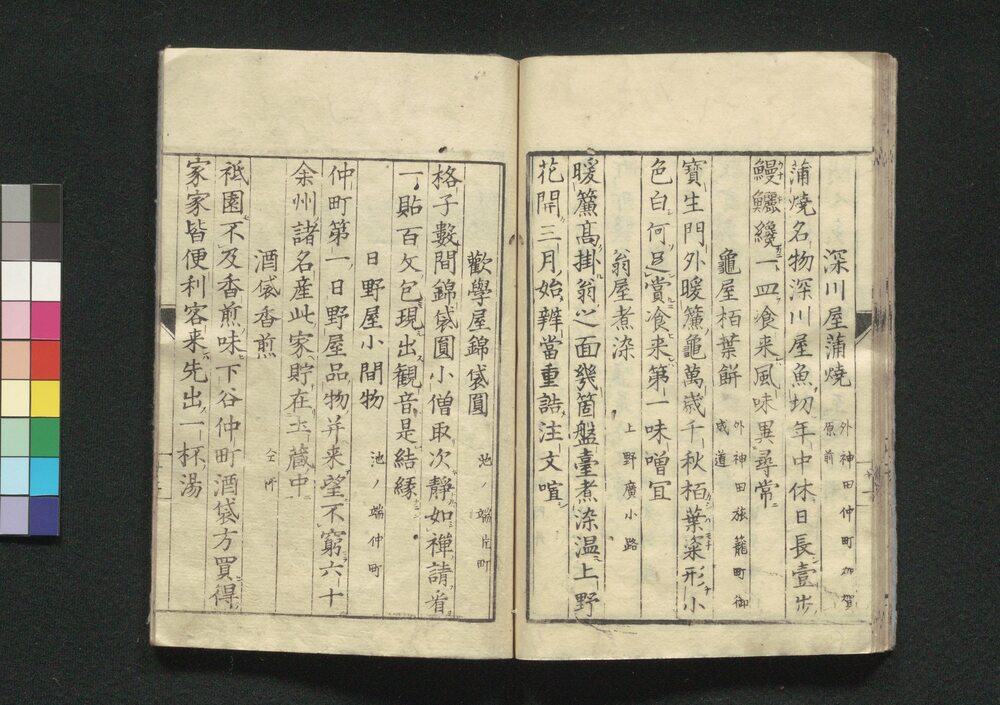 深川屋蒲焼 外神田仲町加賀原前
蒲焼名物深川屋魚切年中休日長壹歩
鰻鱺纔一皿飡来風味異尋常
龜屋栢葉餅 外神田旅籠町御成道
寶生門外暖簾龜萬歳千秋栢葉粢形小
色白何足賞飡来第一味噌宜
翁屋煮染 上野廣小路
暖簾髙掛翁之面幾箇盤臺煮染温上野
花開三月始辨當重詰注文喧
歡學屋錦袋圓 池ノ端片町
格子數間錦袋圓小僧取次靜如禅請看
一貼百文包現出観音是結緣
日野屋小間物 池ノ端仲町
仲町第一日野屋品物并来望不窮六十
余州諸名産此家貯在土藏中
酒袋香煎 仝所
祗園不及香煎味下谷仲町酒袋方買得
家家皆便利客来先出一杯湯